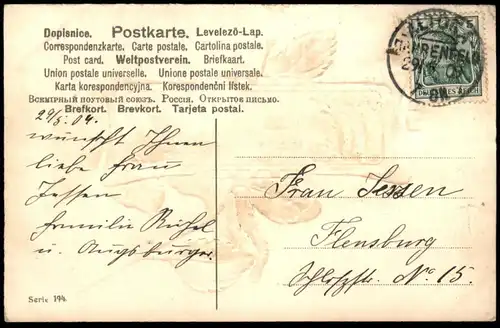 Dopisnice. Postkarte. Levelező-Lap.
Correspondenzkarte. Carte postale. Cartolina postale.
Post card. Weltpostverein. Briefkaart.
Union postale universelle. Unione postale universale.
Karta korespondencyjna. Korespondenční lístek.
Всемирный почтовый союзъ. Россія. Открытое письмо.
Brefkort. Brevkort. Tarjeta postal.
29/5.04.
wünscht Ihnen
liebe Frau
Jessen
Familie
u. Augsburger.
Frau Jessen
Flensburg
Schloßstr. No 15.
Serie 194.
BAHRENFELD
5
DEUTSCHES REICH